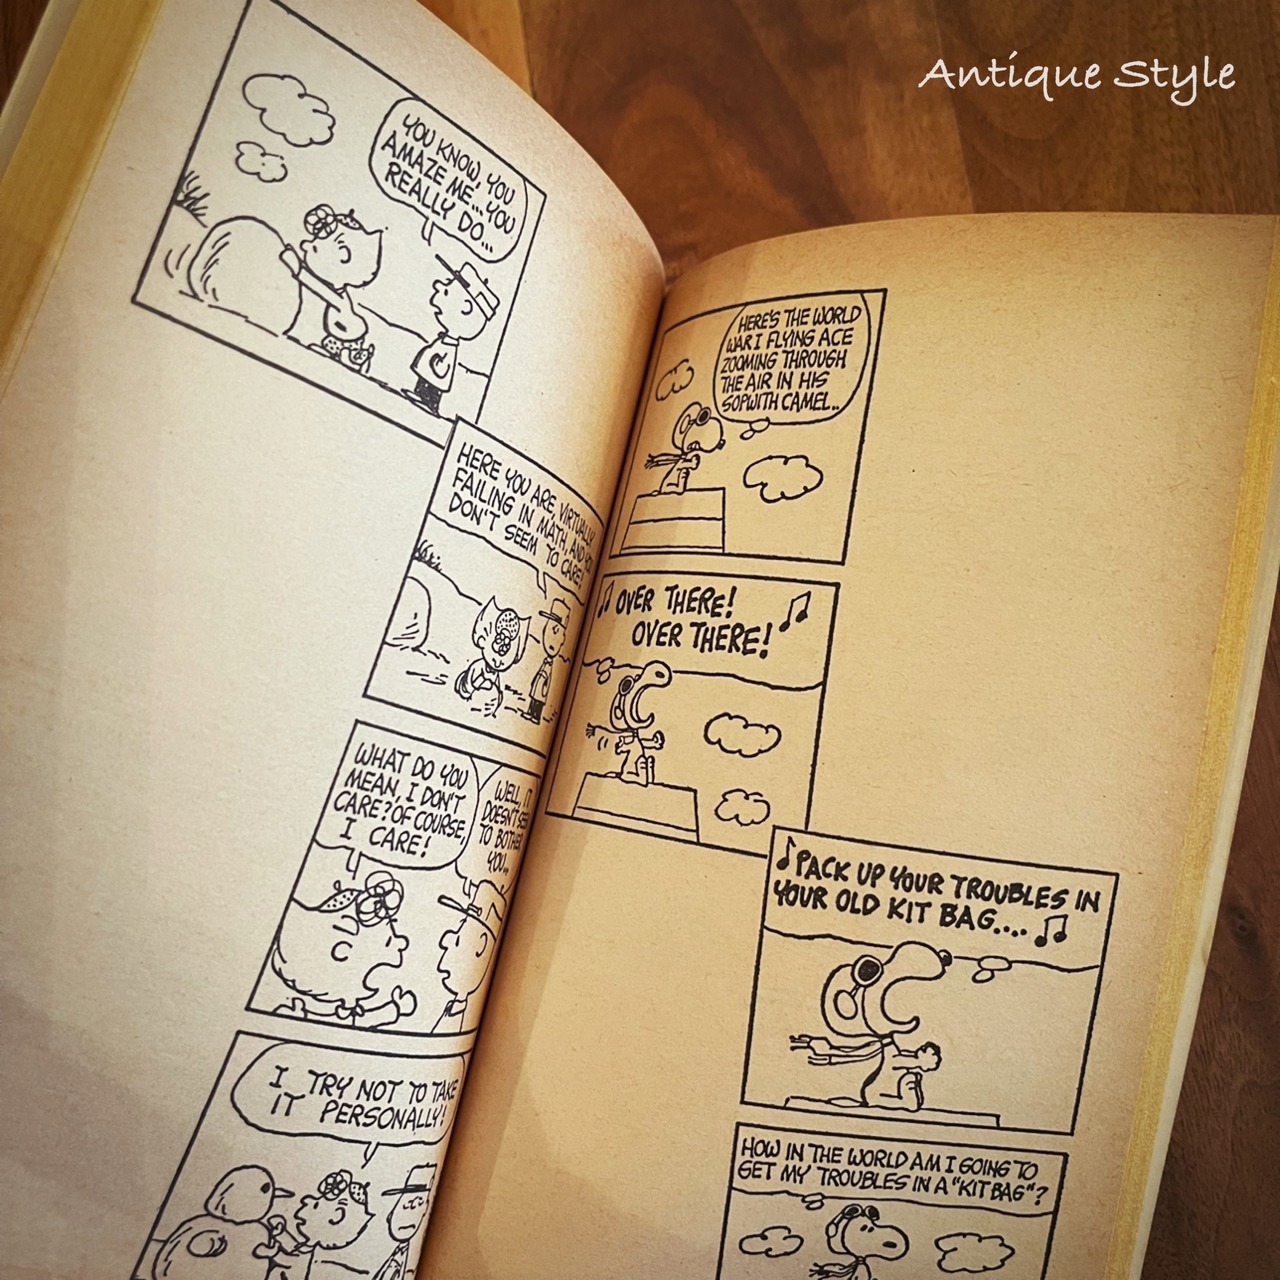 Antique Style
YOU KNOW, YOU
AMAZE ME...YOU
REALLY DO...
HERE YOU ARE, VIRTUALLY
FAILING IN MATH, AND YOU
DON'T SEEM TO CARE!
WHAT DO YOU
MEAN, I DON'T
CARE? OF COURSE,
I CARE!
WELL, IT
DOESN'T SEEM
TO BOTHER
YOU...
I TRY NOT TO TAKE
IT PERSONALLY!
HERE'S THE WORLD
WAR I FLYING ACE
ZOOMING THROUGH
THE AIR IN HIS
SOPWITH CAMEL..
OVER THERE!
OVER THERE!
PACK UP YOUR TROUBLES IN
YOUR OLD KIT BAG....
HOW IN THE WORLD AM I GOING TO
GET MY TROUBLES IN A "KIT BAG"?